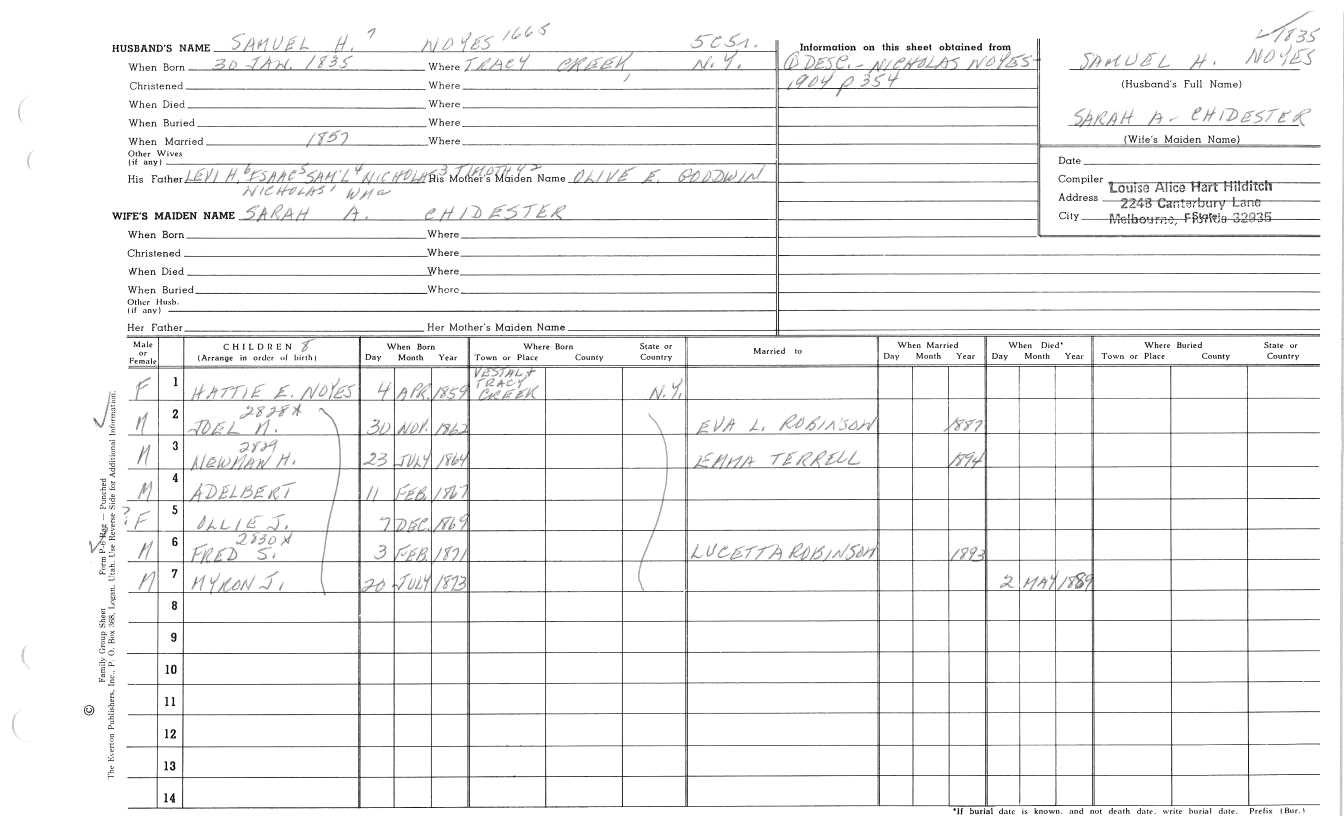 HUSBAND'S NAME SAMUEL H. 7 NOYES 1665 5C5r.
When Born 30 JAN. 1835 Where TRACY CREEK, N.Y.
Christened Where
When Died Where
When Buried Where
When Married 1857 Where
Other Wives
(if any)
His Father LEVI H.6 ISAAC5 SAM'L4 NICHOLAS3 TIMOTHY2 His Mother's Maiden Name OLIVE E. GOODWIN
NICHOLAS1 Wm
WIFE'S MAIDEN NAME SARAH A. CHIDESTER
When Born Where
Christened Where
When Died Where
When Buried Where
Other Husb.
(if any)
Her Father Her Mother's Maiden Name
Information on this sheet obtained from
① DESC. - NICHOLAS NOYES -
1904 p 354
✓1835
SAMUEL H. NOYES
(Husband's Full Name)
SARAH A - CHIDESTER
(Wife's Maiden Name)
Date
Compiler Louise Alice Hart Hilditch
Address 2248 Canterbury Lane
City Melbourne, Florida 32935 State
Male or Female CHILDREN 8 (Arrange in order of birth) When Born Day Month Year Where Born Town or Place County State or Country Married to When Married Day Month Year When Died* Day Month Year Where Buried Town or Place County State or Country
F 1 HATTIE E. NOYES 4 APR. 1859 VESTAL + TRACY CREEK N.Y.
M 2 2828* JOEL M. 30 NOV. 1862 EVA L. ROBINSON 1887
M 3 2829 NEWMAN H. 23 JULY 1864 EMMA TERRELL 1894
M 4 ADELBERT 11 FEB. 1867
? F 5 OLLIE J. 7 DEC. 1869
M 6 2830* FRED S. 3 FEB. 1871 LUCETTA ROBINSON 1893
M 7 MYRON J. 20 JULY 1873 2 MAY 1889
8
9
10
11
12
13
14
*If burial date is known, and not death date, write burial date. Prefix (Bur.)
© Family Group Sheet Form P-6 Reg — Punched
The Everton Publishers, Inc., P. O. Box 368, Logan, Utah. Use Reverse Side for Additional Information.